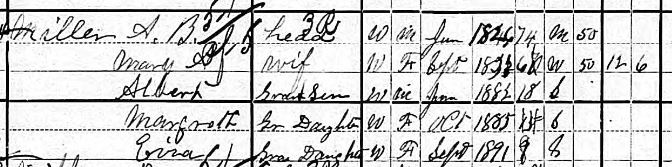 Miller A. B. head W m Jun 1826 74 M 50
Mary wif W F Sept 50 12 6
Albert Grand Son W m Jun 1882 18 S
Margrett Gr Daughter W F Oct 1885 14 S
Erra Gra Daughter W F Sept 1891 8 S